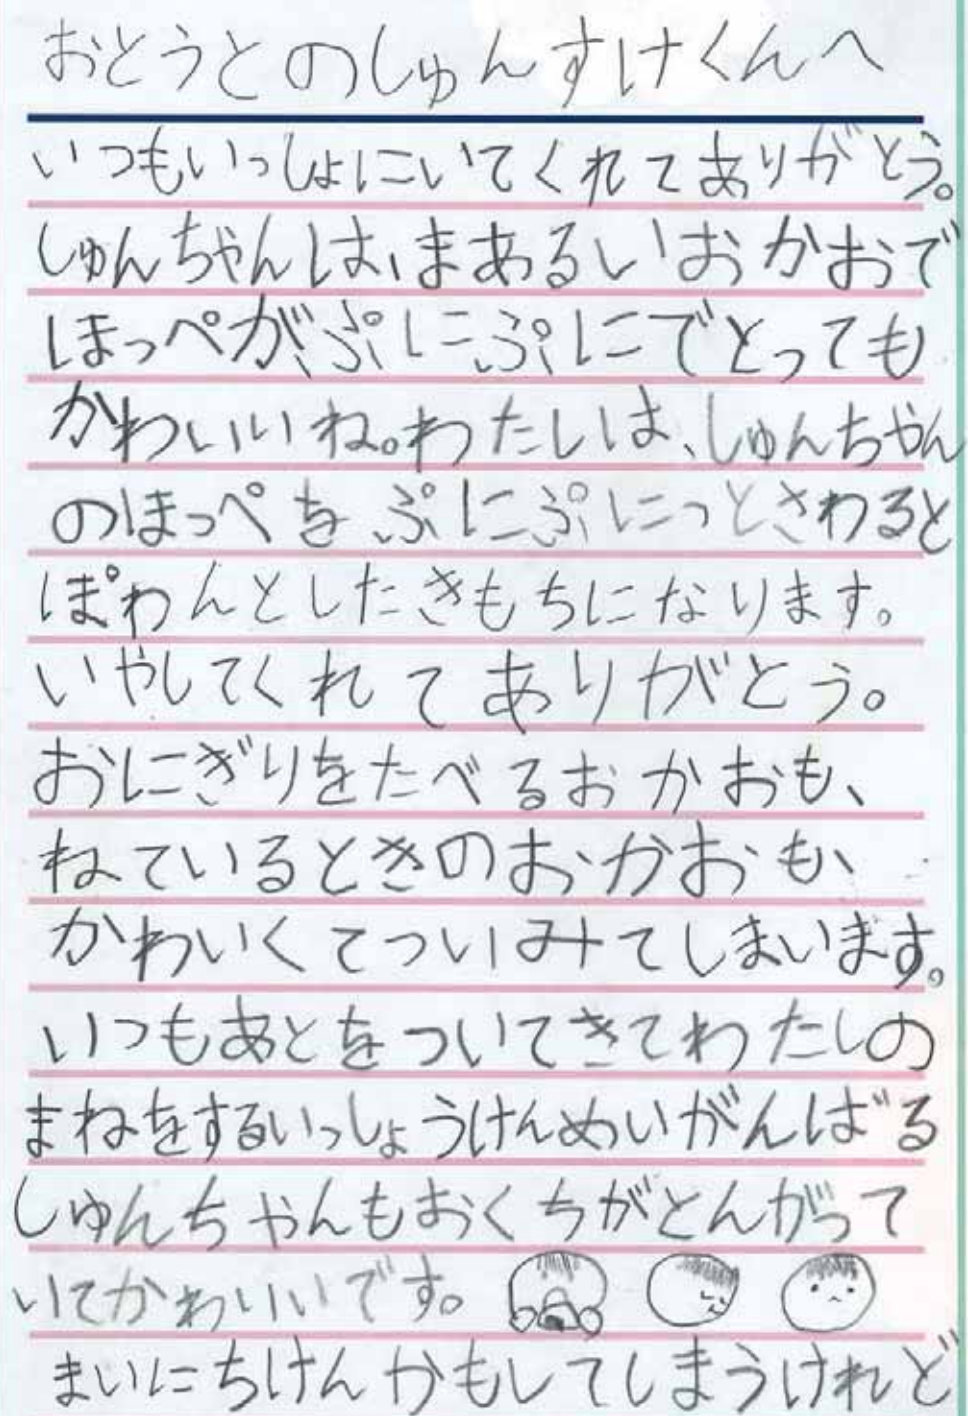 おとうとのしゅんすけくんへ
いつもいっしょにいてくれてありがとう。
しゅんちゃんは、まあるいおかおで
ほっぺがぷにぷにでとっても
かわいいね。わたしは、しゅんちゃん
のほっぺをぷにぷにっとさわると
ぽわんとしたきもちになります。
いやしてくれてありがとう。
おにぎりをたべるおかおも、
ねているときのおかおも、
かわいくてついみてしまいます。
いつもあとをついてきてわたしの
まねをするいっしょうけんめいがんばる
しゅんちゃんもおくちがとんがって
いてかわいいです。
まいにちけんかもしてしまうけれど